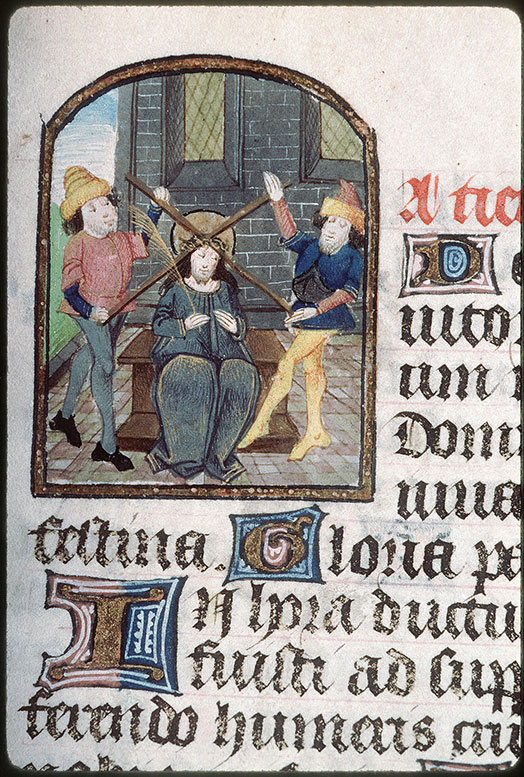 A tier
D
iutor
um
Domi
iuua
festina. Gloria pa
IN hora ductu
fuisti ad supp
ferendo humeris cru